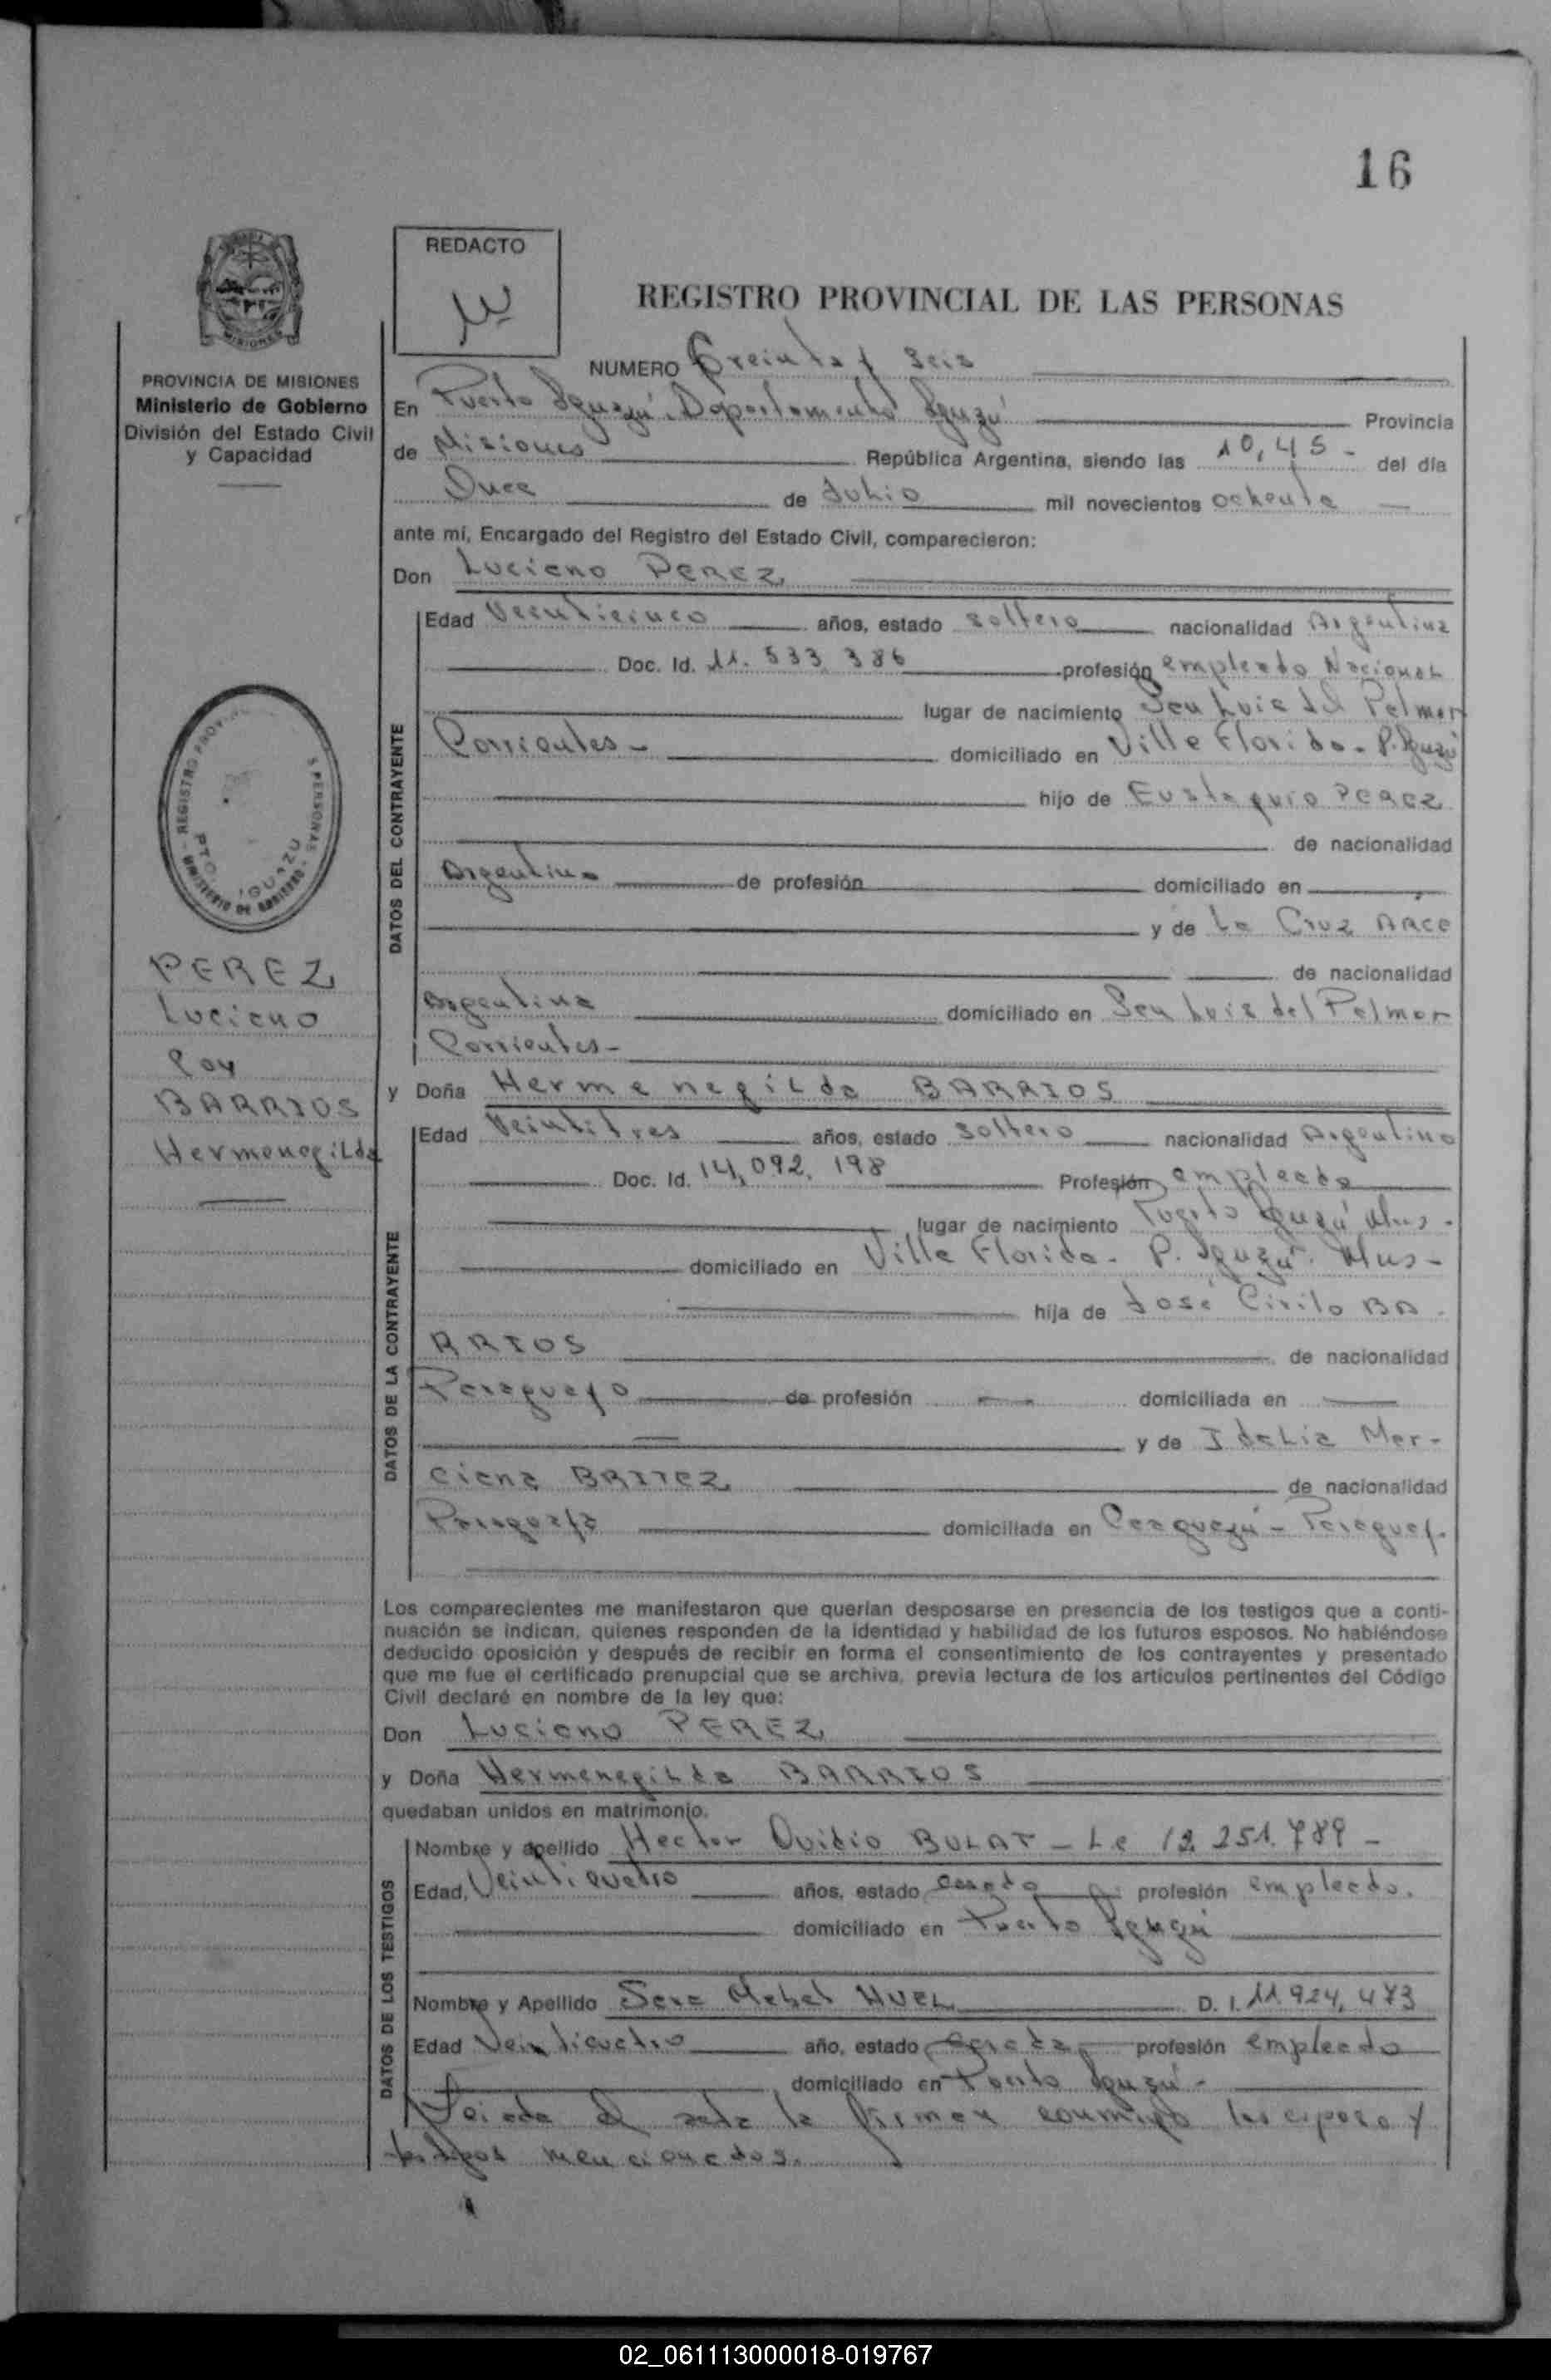 16
REDACTO
REGISTRO PROVINCIAL DE LAS PERSONAS
PROVINCIA DE MISIONES
Ministerio de Gobierno
División del Estado Civil
y Capacidad
NUMERO Treinta y Seis
En Puerto Iguazú, Departamento Iguazú Provincia
de Misiones República Argentina, siendo las 10,45 - del día
Once de Julio mil novecientos ochenta
ante mí, Encargado del Registro del Estado Civil, comparecieron:
Don Luciano PEREZ
DATOS DEL CONTRAYENTE
Edad Veinticinco años, estado soltero nacionalidad Argentina
Doc. Id. 11.533.386 profesión empleado Nacional
lugar de nacimiento San Luis del Palmar
Corrientes - domiciliado en Villa Florida - P. Iguazú
hijo de Eustaquio PEREZ
de nacionalidad
Argentina de profesión domiciliado en
y de La Cruz ARCE
de nacionalidad
Argentina domiciliado en San Luis del Palmar
Corrientes -
y Doña Hermenegilda BARRIOS
DATOS DE LA CONTRAYENTE
Edad Veintitres años, estado soltera nacionalidad Argentina
Doc. Id. 14,092.198 Profesión empleada
lugar de nacimiento Puerto Iguazú Mnes -
domiciliado en Villa Florida - P. Iguazú - Mnes -
hija de José Cirilo BA
RRIOS de nacionalidad
Paraguayo de profesión domiciliada en
y de Idalia Mar-
ciana BRITEZ de nacionalidad
Paraguaya domiciliada en Caaguazú - Paraguay.
Los comparecientes me manifestaron que querían desposarse en presencia de los testigos que a conti-
nuación se indican, quienes responden de la identidad y habilidad de los futuros esposos. No habiéndose
deducido oposición y después de recibir en forma el consentimiento de los contrayentes y presentado
que me fue el certificado prenupcial que se archiva, previa lectura de los artículos pertinentes del Código
Civil declaré en nombre de la ley que:
Don Luciano PEREZ
y Doña Hermenegilda BARRIOS
quedaban unidos en matrimonio.
DATOS DE LOS TESTIGOS
Nombre y apellido Hector Ovidio BULAT - L.e 12.251.789 -
Edad, Veinticuatro años, estado casado profesión empleado.
domiciliado en Puerto Iguazú
Nombre y Apellido Sara Mabel HUEL D. I. 11.924,473
Edad Veinticuatro año, estado casada profesión empleada
domiciliado en Puerto Iguazú -
Leida el acta la firman conmigo los esposo y
testigos mencionados.
REGISTRO PROV. S PERSONAS - MINISTERIO DE GOBIERNO -
PTO. IGUAZU
PEREZ
Luciano
Con
BARRIOS
Hermenegilda
02_061113000018-019767